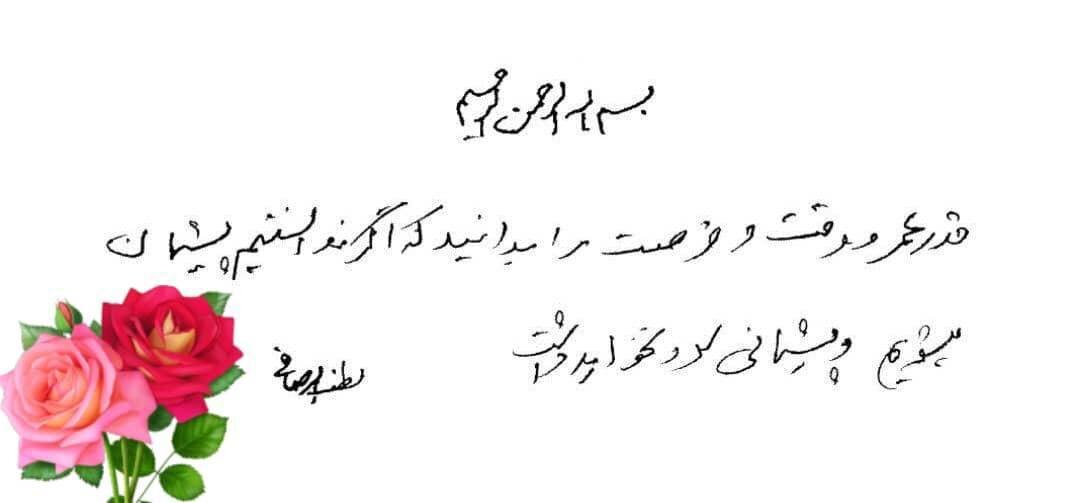 بسم الله الرحمن الرحیم
قدر عمر و وقت و فرصت را بدانید که اگر ندانستیم پشیمان
میشویم و پشیمانی سود نخواهد داشت
لطف الله صافی